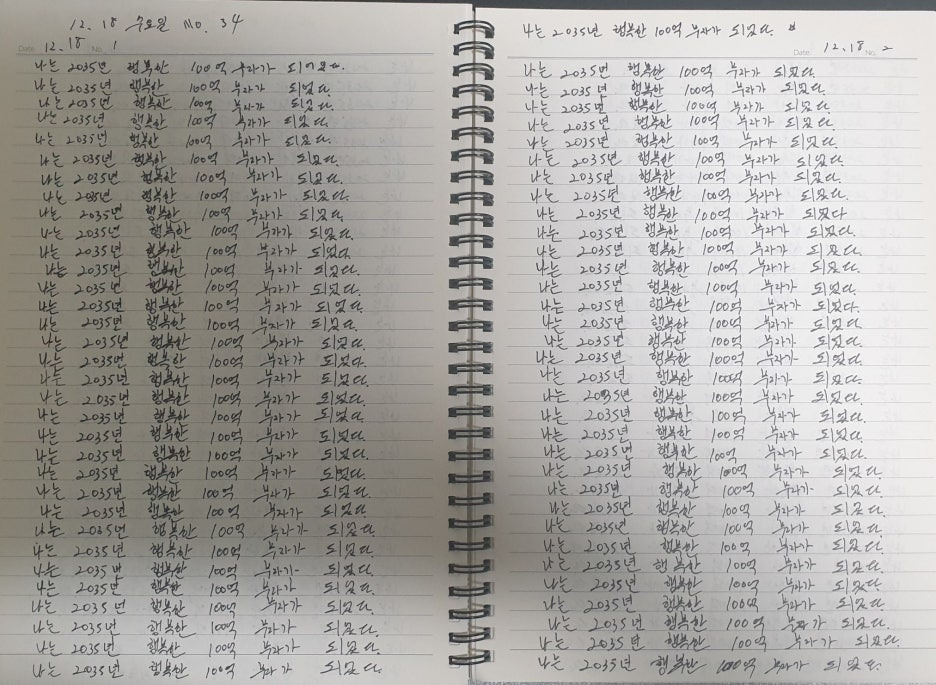 12.18 수요일 No. 34
Date 12.18 No. 1
나는 2035년 행복한 100억 부자가 되었다.
나는 2035년 행복한 100억 부자가 되었다.
나는 2035년 행복한 100억 부자가 되었다.
나는 2035년 행복한 100억 부자가 되었다.
나는 2035년 행복한 100억 부자가 되었다.
나는 2035년 행복한 100억 부자가 되었다.
나는 2035년 행복한 100억 부자가 되었다.
나는 2035년 행복한 100억 부자가 되었다.
나는 2035년 행복한 100억 부자가 되었다.
나는 2035년 행복한 100억 부자가 되었다.
나는 2035년 행복한 100억 부자가 되었다.
나는 2035년 행복한 100억 부자가 되었다.
나는 2035년 행복한 100억 부자가 되었다.
나는 2035년 행복한 100억 부자가 되었다.
나는 2035년 행복한 100억 부자가 되었다.
나는 2035년 행복한 100억 부자가 되었다.
나는 2035년 행복한 100억 부자가 되었다.
나는 2035년 행복한 100억 부자가 되었다.
나는 2035년 행복한 100억 부자가 되었다.
나는 2035년 행복한 100억 부자가 되었다.
나는 2035년 행복한 100억 부자가 되었다.
나는 2035년 행복한 100억 부자가 되었다.
나는 2035년 행복한 100억 부자가 되었다.
나는 2035년 행복한 100억 부자가 되었다.
나는 2035년 행복한 100억 부자가 되었다.
나는 2035년 행복한 100억 부자가 되었다.
나는 2035년 행복한 100억 부자가 되었다.
나는 2035년 행복한 100억 부자가 되었다.
나는 2035년 행복한 100억 부자가 되었다.
나는 2035년 행복한 100억 부자가 되었다.
나는 2035년 행복한 100억 부자가 되었다.
나는 2035년 행복한 100억 부자가 되었다.
나는 2035년 행복한 100억 부자가 되었다.
나는 2035년 행복한 100억 부자가 되었다.
Date 12.18 No. 2
나는 2035년 행복한 100억 부자가 되었다.
나는 2035년 행복한 100억 부자가 되었다.
나는 2035년 행복한 100억 부자가 되었다.
나는 2035년 행복한 100억 부자가 되었다.
나는 2035년 행복한 100억 부자가 되었다.
나는 2035년 행복한 100억 부자가 되었다.
나는 2035년 행복한 100억 부자가 되었다.
나는 2035년 행복한 100억 부자가 되었다.
나는 2035년 행복한 100억 부자가 되었다
나는 2035년 행복한 100억 부자가 되었다.
나는 2035년 행복한 100억 부자가 되었다.
나는 2035년 행복한 100억 부자가 되었다.
나는 2035년 행복한 100억 부자가 되었다.
나는 2035년 행복한 100억 부자가 되었다.
나는 2035년 행복한 100억 부자가 되었다.
나는 2035년 행복한 100억 부자가 되었다.
나는 2035년 행복한 100억 부자가 되었다.
나는 2035년 행복한 100억 부자가 되었다.
나는 2035년 행복한 100억 부자가 되었다.
나는 2035년 행복한 100억 부자가 되었다.
나는 2035년 행복한 100억 부자가 되었다.
나는 2035년 행복한 100억 부자가 되었다.
나는 2035년 행복한 100억 부자가 되었다.
나는 2035년 행복한 100억 부자가 되었다.
나는 2035년 행복한 100억 부자가 되었다.
나는 2035년 행복한 100억 부자가 되었다.
나는 2035년 행복한 100억 부자가 되었다.
나는 2035년 행복한 100억 부자가 되었다.
나는 2035년 행복한 100억 부자가 되었다.
나는 2035년 행복한 100억 부자가 되었다.
나는 2035년 행복한 100억 부자가 되었다.
나는 2035년 행복한 100억 부자가 되었다.
나는 2035년 행복한 100억 부자가 되었다.